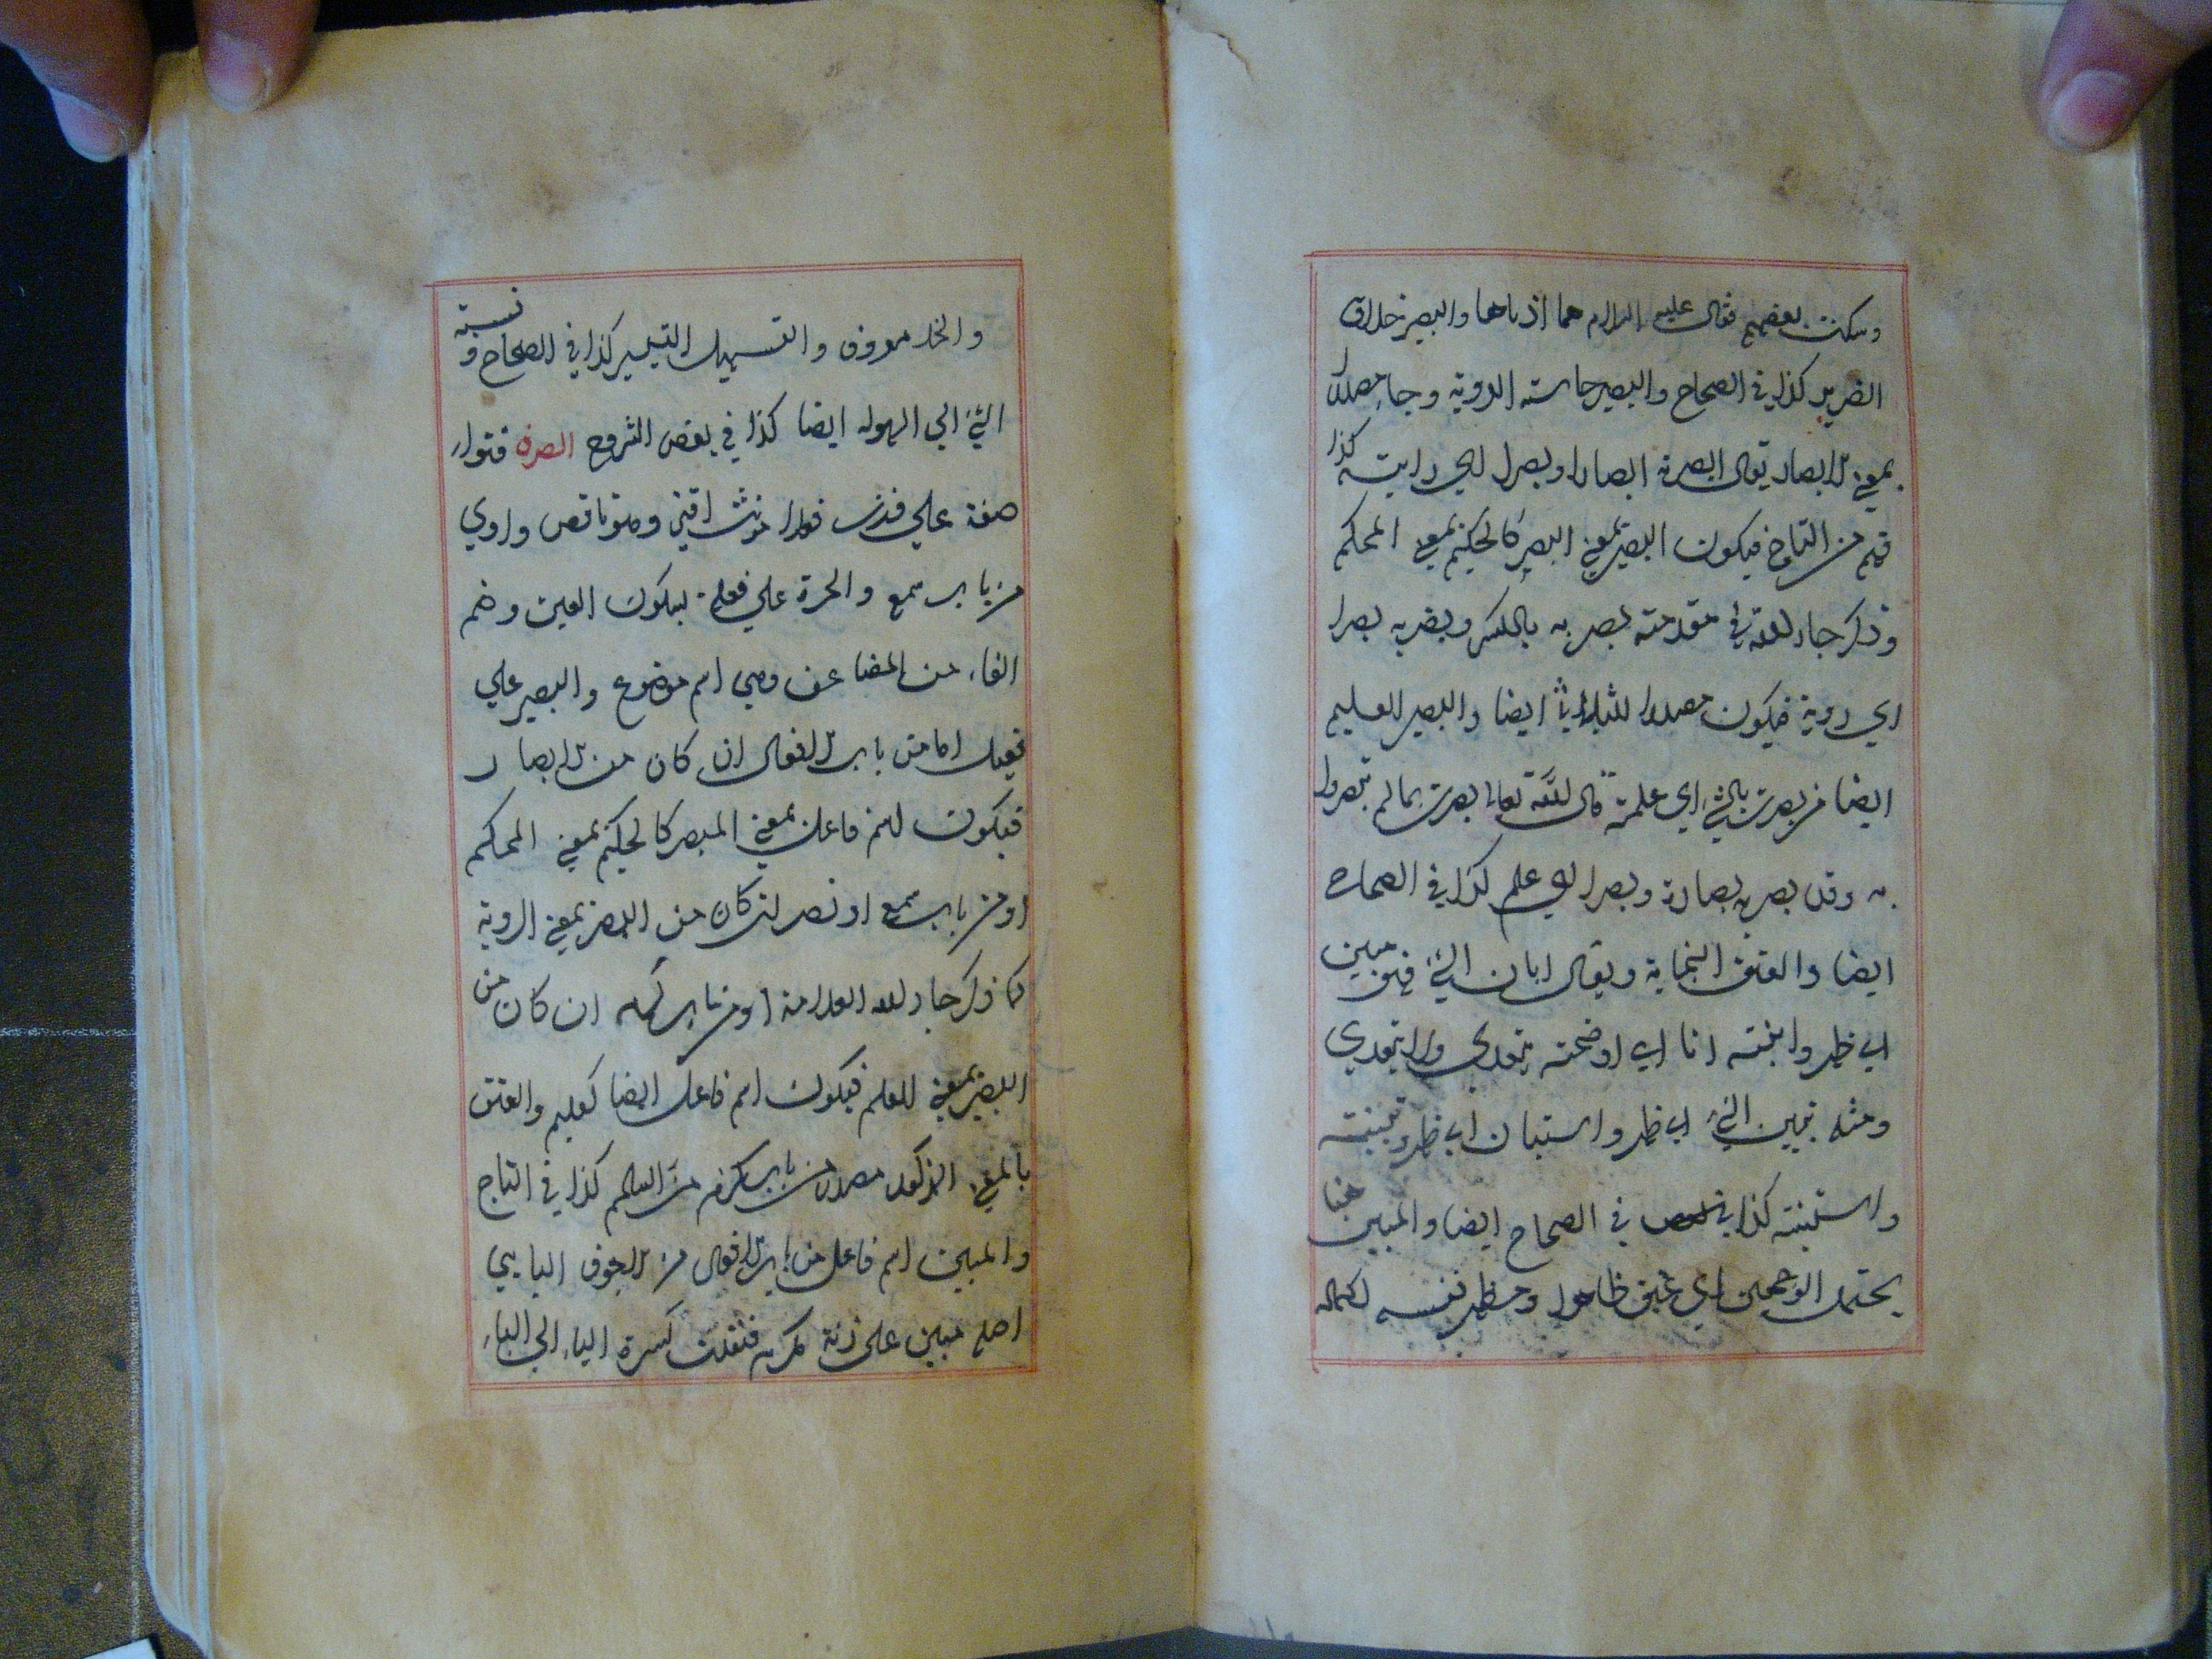 وسكت بعضهم فقال عليه السلام هما اذناهما والبصير خلاف
الضرير كذا في الصحاح والبصر حاسته الروية وجاء مصدرا
بمعنى الابصار يقال ابصرته ابصارا وبصرا اي رايته كذا
من التاج فيكون البصير بمعنى المبصر كالحكيم بمعنى المحكم
وذكر جار الله في مقدمته بصر به بالكسر وبضربه بصرا
اي روية فيكون مصدرا للثلاثي ايضا والبصير العليم
ايضا من بصرت بالشئ اي علمته قال الله تعالى بصرت بما لم تبصروا
به وقد بصر به بصارة وبصرا اي علم كذا في الصحاح
ايضا والعتق النجابة ويقال ابان الشئ فهو مبين
اي ظهر وابنته انا اي اوضحته يتعدى ولا يتعدى
ومثله تبين الشئ اي ظهر واستبان اي ظهر وتبينته
واستبنته كذا في الصحاح ايضا والمبين هنا
يحتمل الوجهين اي عتق ظاهر ومظهر نفسه لكماله
والخد معروف والتسهيل التيسير كذا في الصحاح ونسبته
الشئ الى السهولة ايضا كذا في بعض الشروح الصرف قنواء
صفة على فعلاء مونث اقنى وهو ناقص واوي
من باب سمع والحرة على فعلة بسكون العين وضم
الفاء من المضاعف وهي اسم موضوع والبصير على
فعيل اما من باب الافعال ان كان من الابصار
فيكون اسم فاعل بمعنى المبصر كالحكيم بمعنى المحكم
او من باب سمع او نصر ان كان من البصر بمعنى الروية
كما ذكر جار الله العلامة او من باب كرم ان كان من
البصر بمعنى العلم فيكون اسم فاعل ايضا كعليم والعتق
بالمعنى المذكور مصدر من باب كرم من السالم كذا في التاج
والمبين اسم فاعل من باب الافعال من الاجوف اليايي
اصله مبين على زنة مكرم فنقلت كسرة الياء الى الباء